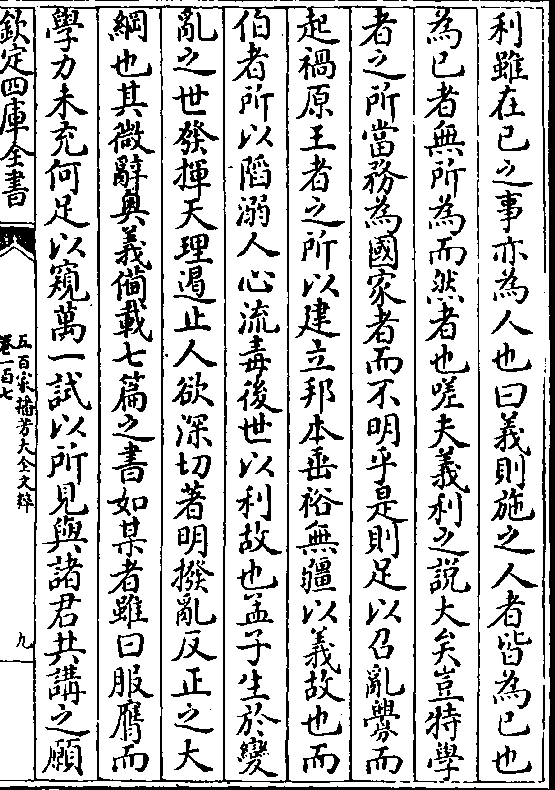 利雖在已之事亦為人也曰義則施之人者皆為已也
為已者無所為而然者也嗟夫義利之說大矣豈特學
者之所當務為國家者而不明乎是則足以召亂釁而
起禍原王者之所以建立邦本垂裕無疆以義故也而
伯者所以陷溺人心流毒後世以利故也孟子生於變
亂之世發揮天理遏止人欲深切著明撥亂反正之大
綱也其微辭奥義備載七篇之書如某者雖曰服膺而
學力未充何足以窺萬一試以所見與諸君共講之願
欽定四庫全書
五百家播芳大全文粹
卷一百七
九